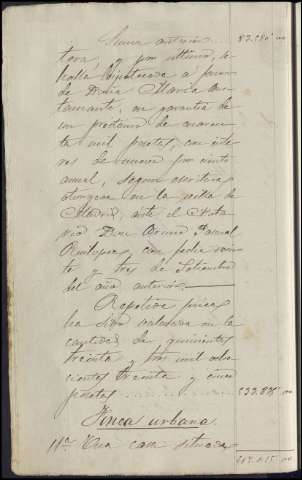 Suma anterior . . . 83.180 00
tora, y por ultimo, se
halla hipotecada a favor
de Doña Maria
en garantia de
un prestamo de cuarenta
mil pesetas, con inte-
res de nueve por ciento
anual, segun escritura
otorgada en la villa de
Madrid, ante el Nota-
rio Don
con fecha vein-
te y tres de Setiembre
del año anterior.
Repetida finca
ha sido valorada en la
cantidad de quinientas
treinta y tres mil ocho-
cientas treinta y cinco
pesetas . . . 533.835 00
Finca urbana
11ª Una casa situada